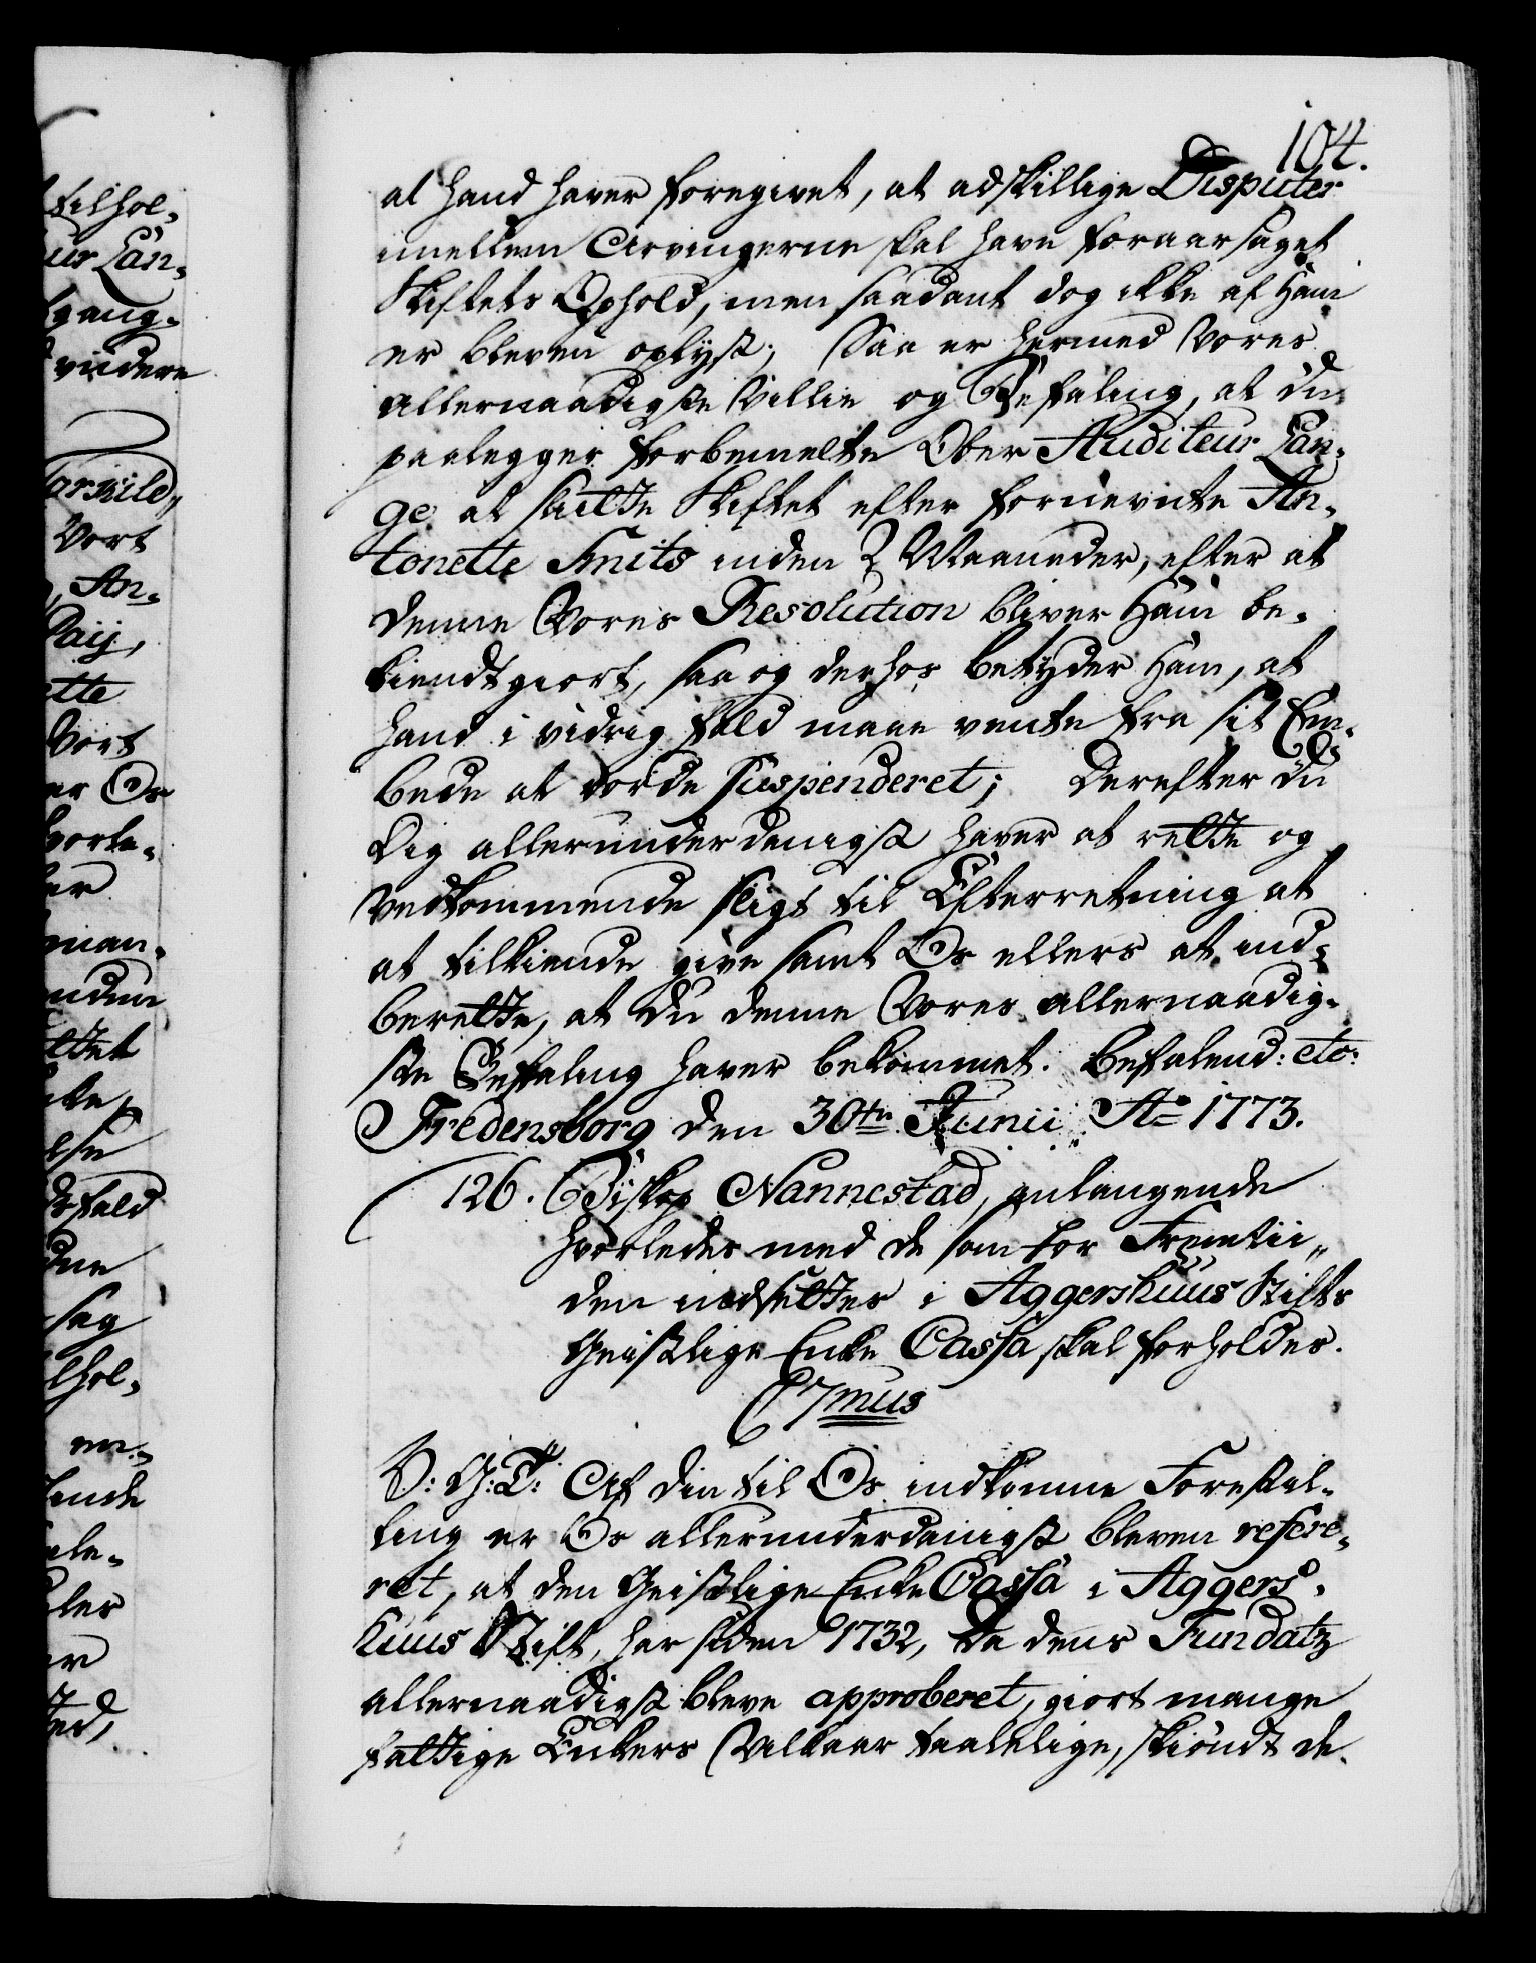 104.
at hand haver foregivet, at adskillige Disputer
imellem Arvingerne skal have foraarsaget
Skiftets Ophold, men saadant dog ikke af Ham
er bleven oplyst; Saa er hermed Vores
allernaadigste Villie og Befaling, at du
paalegger forbemelte Ober Auditeur Lan-
ge at slutte Skiftet efter fornevnte An-
tonette Smits inden 2 Maaneder, efter at
denne Vores Resolution bliver Ham be-
kiendtgiort, saa og derhos betyder Ham, at
hand i vidrig fald maae vente fra sit Em-
bede at vorde suspenderet; Derefter du
Dig allerunderdanigst haver at rette og
Vedkommende sligt til Efterretning at
at tilkiende give samt Os ellers at ind-
berette, at du denne Vores allernaadig-
ste Befaling haver bekommet. Befalend: etc:
Fredensborg den 30te Junii Ao 1773.
126. Biskop Nannestad, anlangende
hvorledes med de som for Fremtii„
den indsettes i Aggershuus Stifts
Geistlige Enke Cassa skal forholdes.
C7mus
V: G: T: Af din til Os indkomne Forestil-
ling er Os allerunderdanigst bleven refere-
ret, at den Geistlige Enke Cassa i Aggers-
huus Stift, har siden 1732, da dens Fundatz
allernaadigst bleve approberet, giort mange
fattige Enkers Vilkaar taalelige, skiøndt de